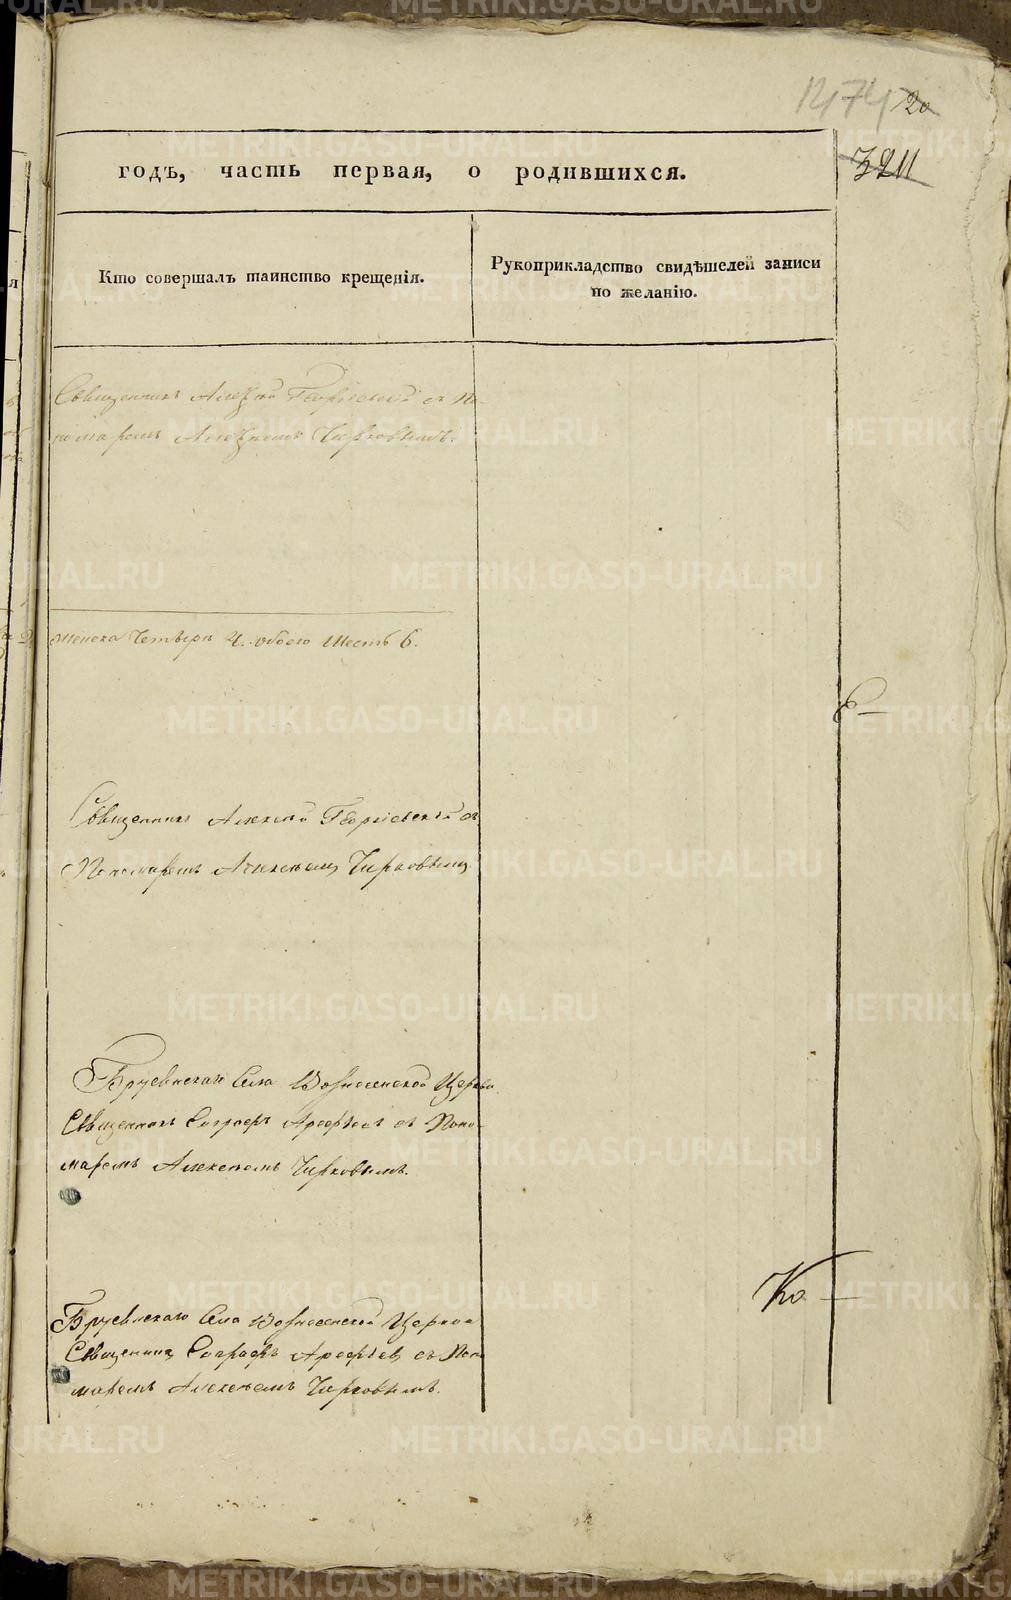 1474 20
321
годъ, часть первая, о родившихся.
Кто совершалъ таинство крещенія.
Рукоприкладство свидѣтелей записи
по желанію.
Священникъ Алексѣй Георгіевскій съ По-
номаремъ Алексѣемъ Чирковымъ.
женска Четыри 4. обоего Шесть 6.
Священникъ Алексѣй Георгіевскій съ
Пономаремъ Алексѣемъ Чирковымъ
села Вознесенской Церкви
Священникъ Арефьевъ съ Поно-
маремъ Алексѣемъ Чирковымъ.
Ко
села Вознесенской Церкви
Священникъ Арефьевъ съ Поно
маремъ Алексѣемъ Чирковымъ.
METRIKI.GASO-URAL.RU